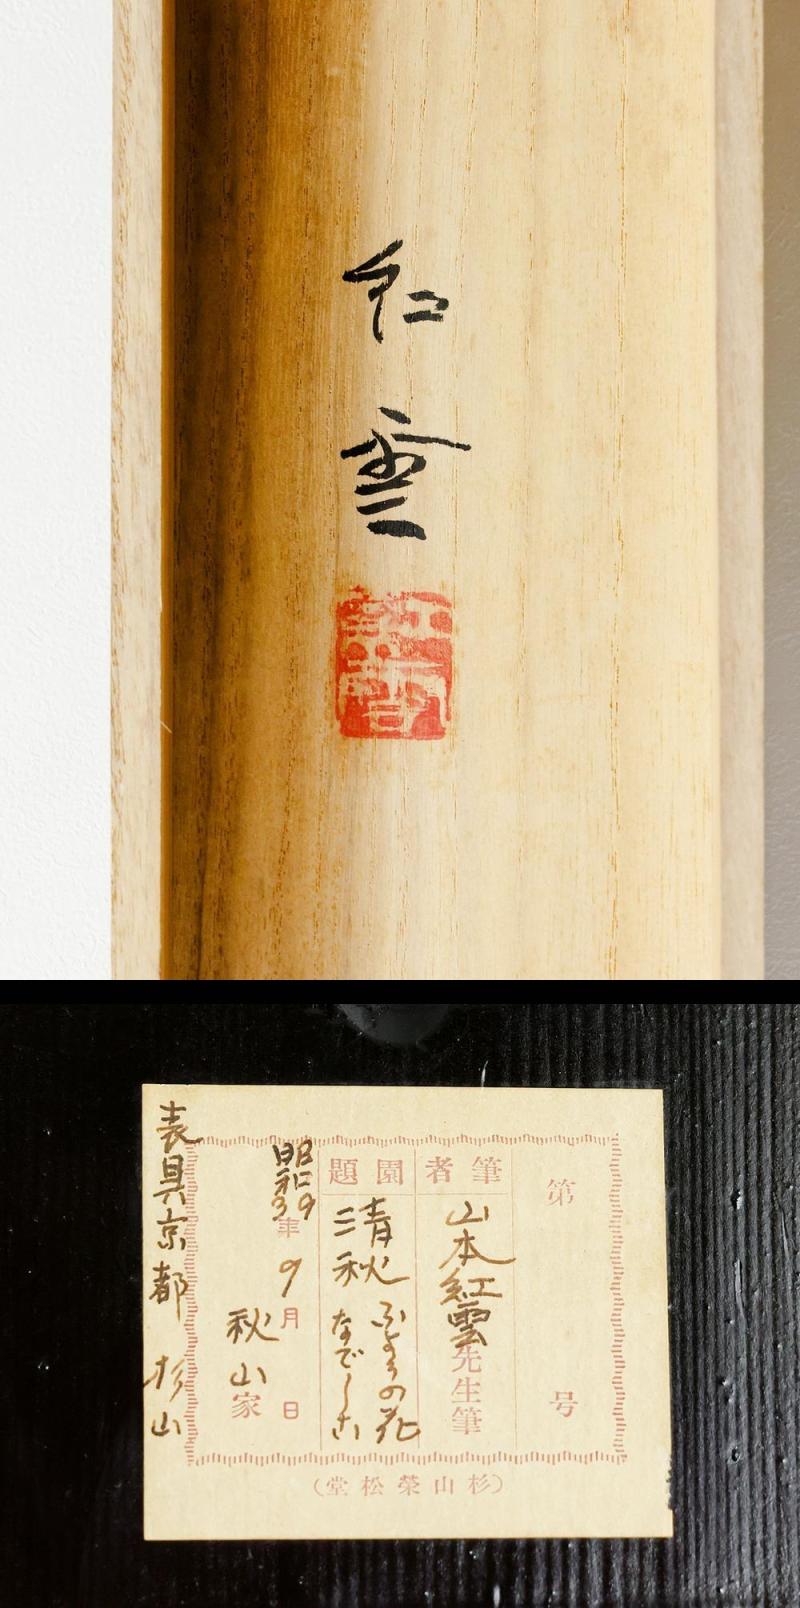 紅雲
紅雲
第 号
筆者
山本紅雲先生筆
園題
清秋 ふようの花
なでしこ
昭和39年9月 日
秋山家
表具京都 杉山
（杉山榮松堂）